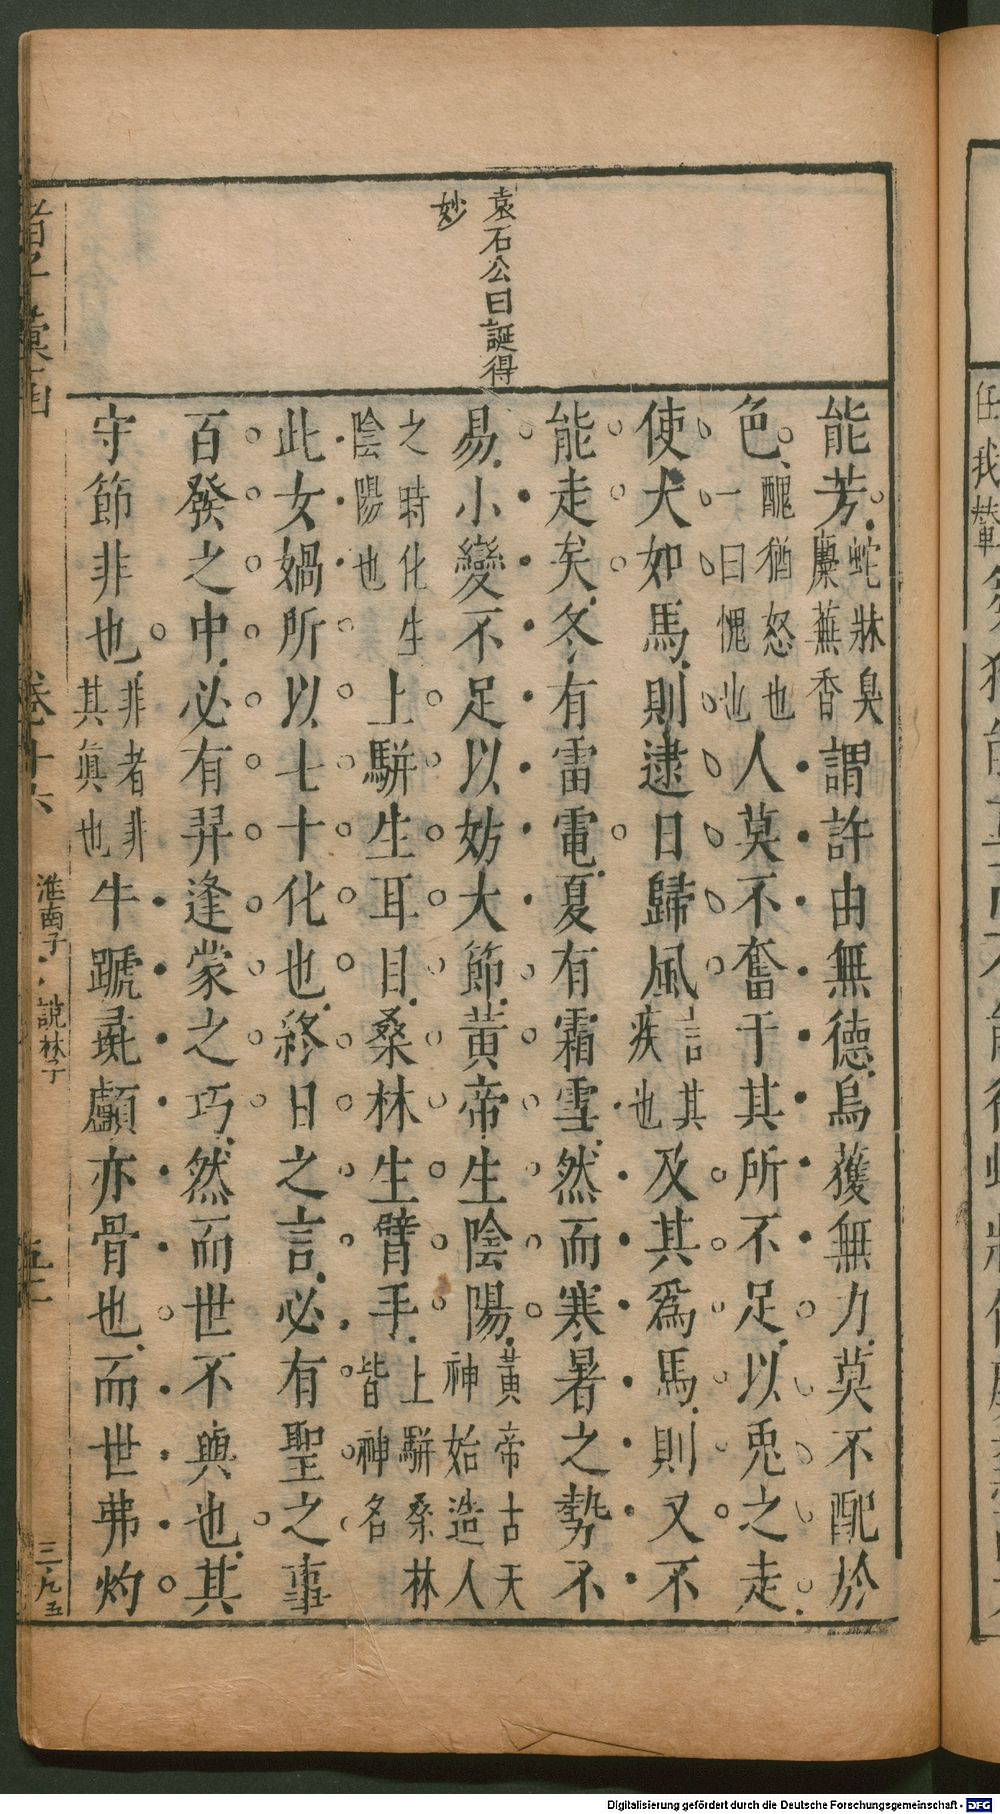 袁石公曰誕得
妙
能芳蛇牀臭蘪蕪香謂許由無德烏獲無力莫不配於
色醜猶怒也一曰愧也人莫不奮于其所不足以兎之走
使犬如馬則逮日歸風言其疾也及其爲馬則又不
能走矣冬有雷電夏有霜雪然而寒暑之勢不
易小變不足以妨大節黃帝生陰陽黃帝古天神始造人
之時化生陰陽也上騈生耳目桑林生臂手上騈桑林皆神名
此女媧所以七十化也終日之言必有聖之事
百發之中必有羿逢蒙之巧然而世不與也其
守節非也非者非其眞也牛蹏彘顱亦骨也而世弗灼
諸子彙函
卷十六
淮南子
說林子
三九五
任我
Digitalisierung gefördert durch die Deutsche Forschungsgemeinschaft - DFG